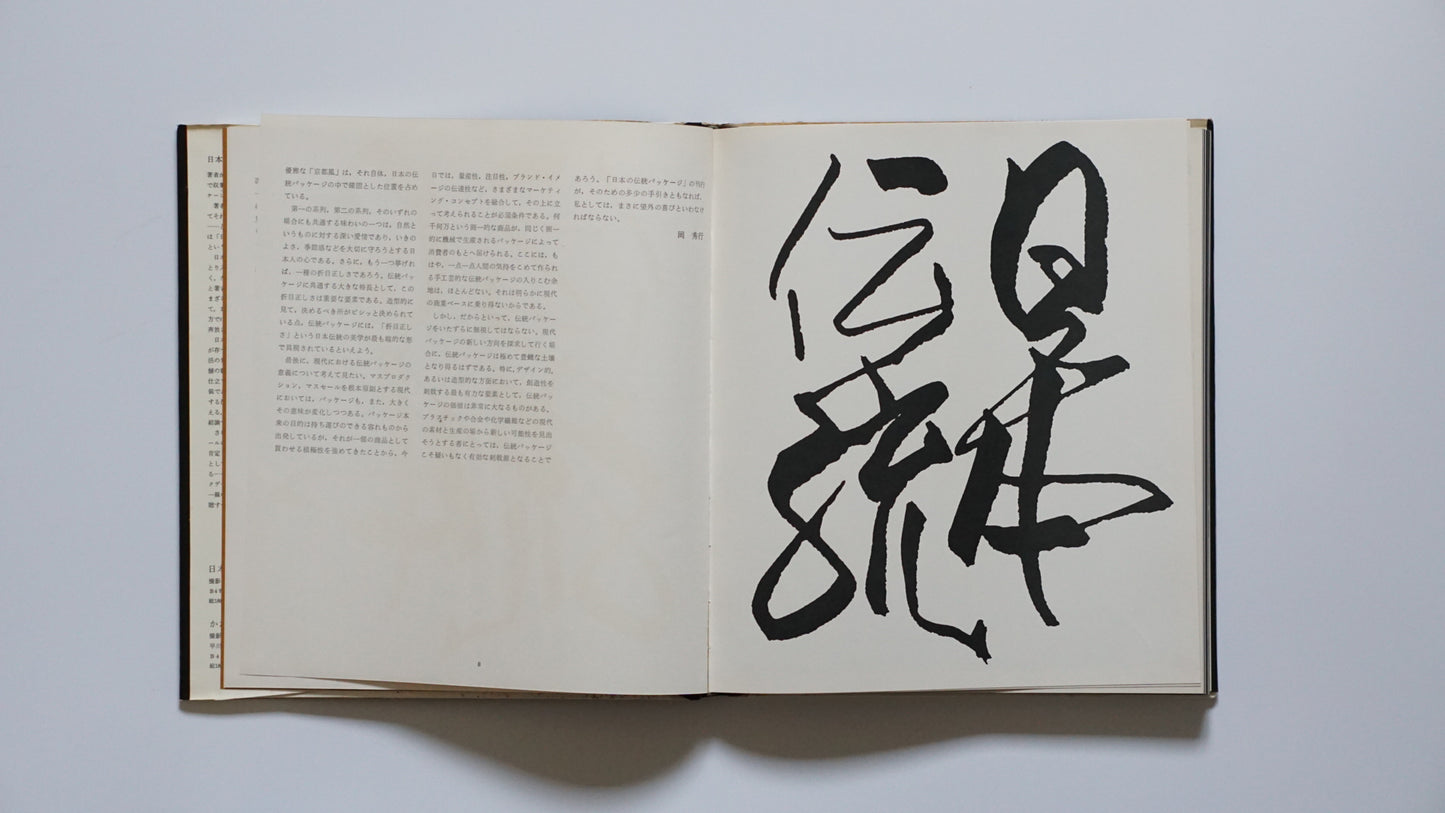 優雅な「京都風」は、それ自体、日本の伝
統パッケージの中で確固とした位置を占め
ている。
第一の系列、第二の系列、そのいずれの
場合にも共通する味わいの一つは、自然と
いうものに対する深い愛情であり、いきの
よさ、季節感などを大切に守ろうとする日
本人の心である。さらに、もう一つ挙げれ
ば、一種の折目正しさであろう。伝統パッ
ケージに共通する大きな特長として、この
折目正しさは重要な要素である。造型的に
見て、決めるべき所がピシッと決められて
いる点、伝統パッケージには、「折目正し
さ」という日本伝統の美学が最も端的な形
で具現されているといえよう。
最後に、現代における伝統パッケージの
意義について考えて見たい。マスプロダク
ション、マスセールを根本原則とする現代
においては、パッケージも、また、大きく
その意味が変化しつつある。パッケージ本
来の目的は持ち運びのできる容れものから
出発しているが、それが一個の商品として
買わせる積極性を強めてきたことから、今
日では、量産性、注目性、ブランド・イメ
ージの伝達性など、さまざまなマーケティ
ング・コンセプトを統合して、その上に立
って考えられることが必須条件である。何
千何万という画一的な商品が、同じく画一
的に機械で生産されるパッケージによって
消費者のもとへ届けられる。ここには、も
はや、一点一点人間の気持をこめて作られ
る手工芸的な伝統パッケージの入りこむ余
地は、ほとんどない。それは明らかに現代
の商業ベースに乗り得ないからである。
しかし、だからといって、伝統パッケー
ジをいたずらに無視してはならない。現代
パッケージの新しい方向を探求して行く場
合に、伝統パッケージは極めて豊饒な土壌
となり得るはずである。特に、デザイン的、
あるいは造型的な方面において、創造性を
刺戟する最も有力な要素として、伝統パッ
ケージの価値は非常に大なるものがある。
プラスチックや合金や化学繊維などの現代
の素材と生産の場から新しい可能性を見出
そうとする者にとっては、伝統パッケージ
こそ疑いもなく有効な刺戟源となることで
あろう。「日本の伝統パッケージ」の刊行
が、そのための多少の手引きともなれば、
私としては、まさに望外の喜びといわなけ
ればならない。
岡 秀行
8
日本
伝統